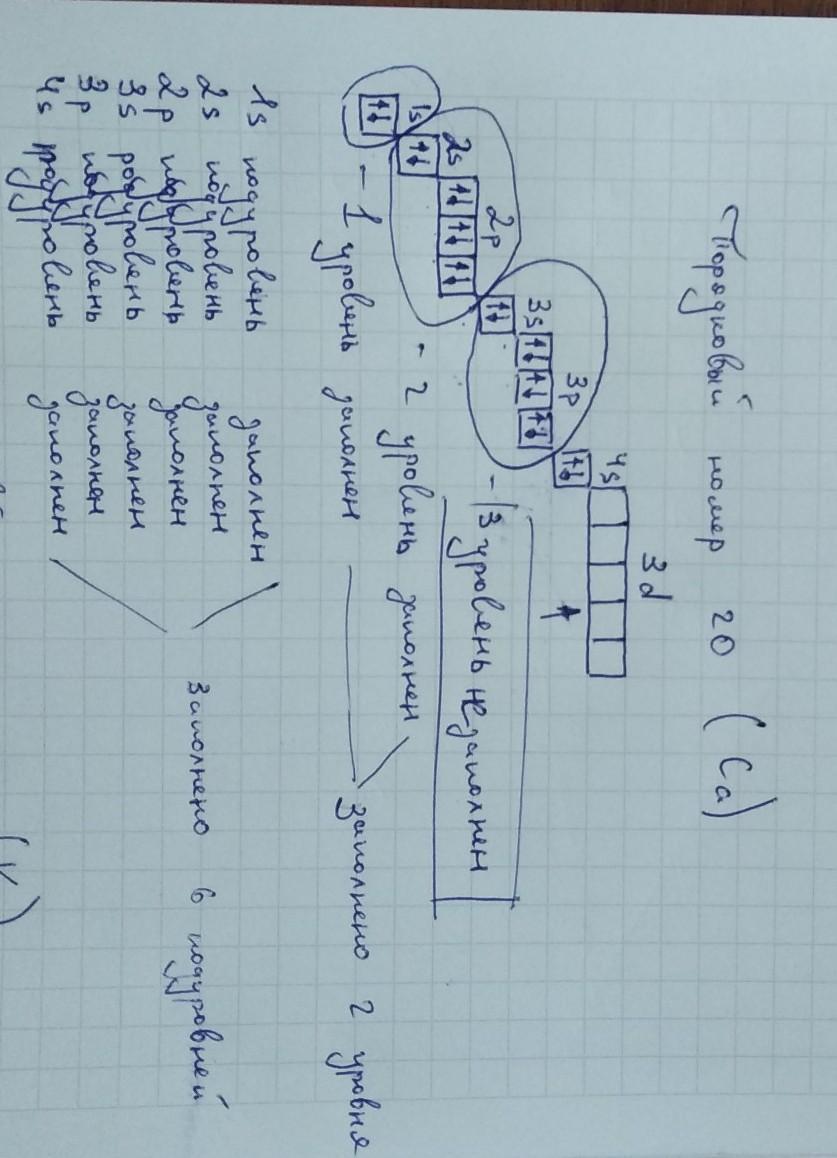 Порядковый номер 20 (Ca)
3d
4s
3p
3s
2p
2s
1s
- 3 уровень не заполнен
- 2 уровень заполнен
- 1 уровень заполнен
Заполнено 2 уровня
1s подуровень заполнен
2s подуровень заполнен
2p подуровень заполнен
3s подуровень заполнен
3p подуровень заполнен
4s подуровень заполнен
Заполнено 6 подуровней
(K)